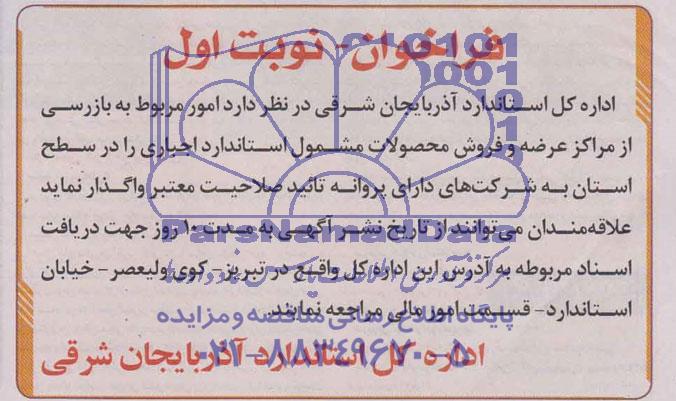 فراخوان - نوبت اول
اداره کل استاندارد آذربایجان شرقی در نظر دارد امور مربوط به بازرسی
از مراکز عرضه و فروش محصولات مشمول استاندارد اجباری را در سطح
استان به شرکت‌های دارای پروانه تائید صلاحیت معتبر واگذار نماید
علاقه‌مندان می‌توانند از تاریخ نشر آگهی به مدت ۱۰ روز جهت دریافت
اسناد مربوطه به آدرس این اداره کل واقع در تبریز - کوی ولیعصر - خیابان
استاندارد - قسمت امور مالی مراجعه نمایند.
اداره کل استاندارد آذربایجان شرقی
ParsNamadData
پایگاه اطلاع رسانی مناقصه و مزایده
۰۲۱-۸۸۳۴۹۶۷۰-۵